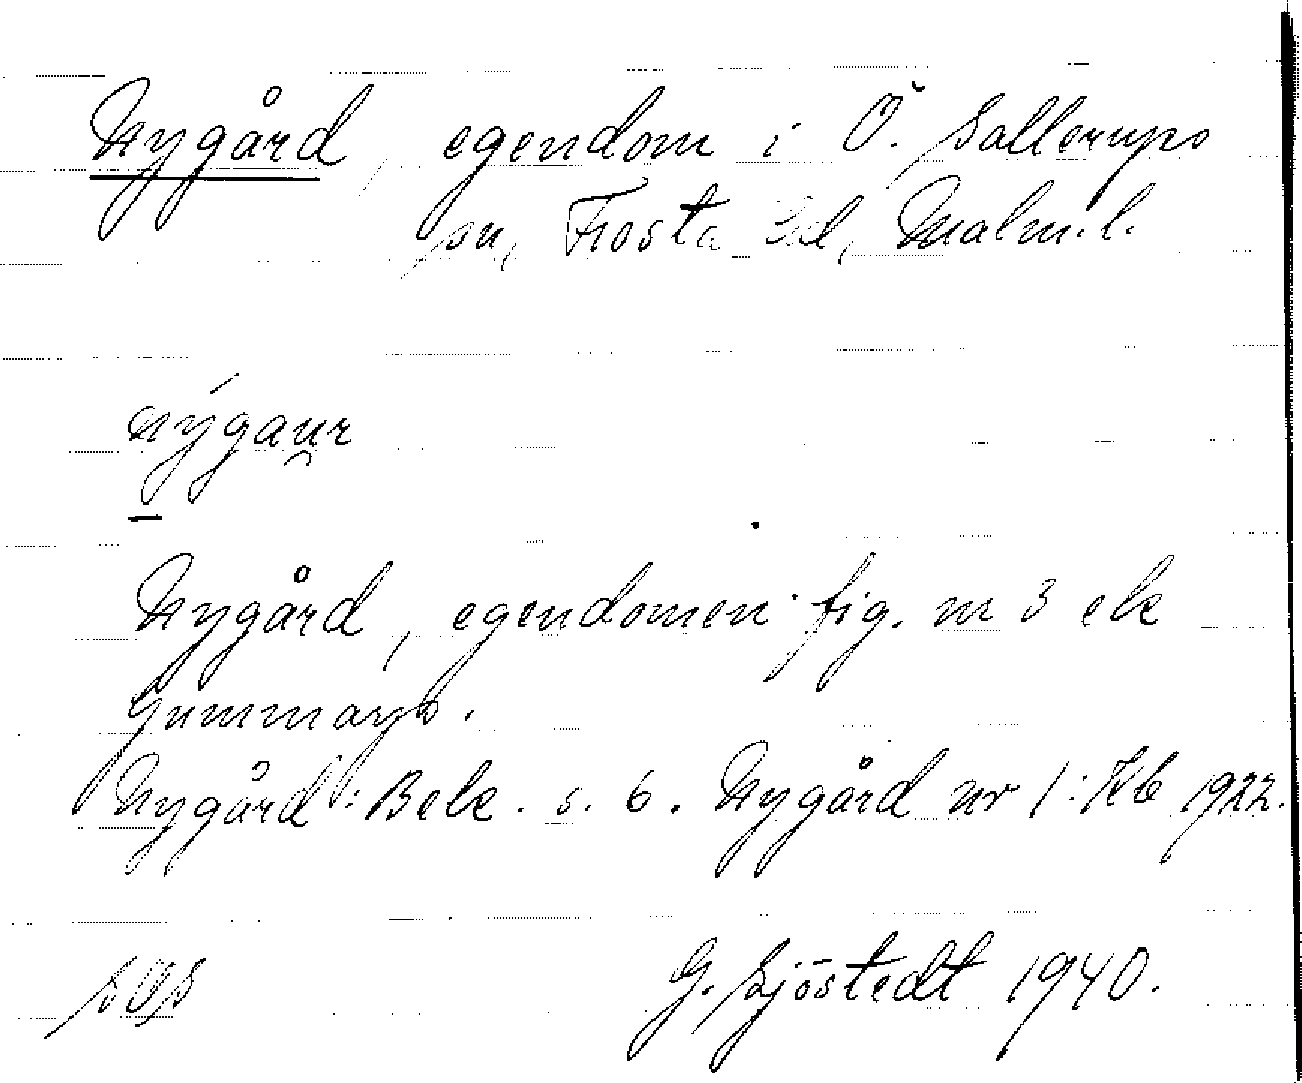 Nygård, egendom i Ö. Sallerups
sn, Frosta hd, Malm.l.
nýgau̯r
Nygård, egendomen fig. nr 3 ek
Gummarp.
Nygård: Bek. s. 6. Nygård nr 1: Kb 1922.
sOs
G. Sjöstedt 1940.